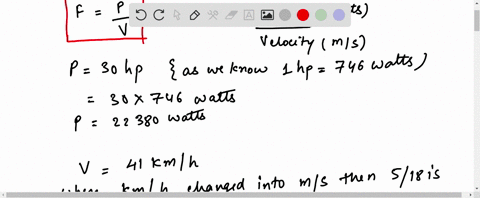 F = P/V ts)
Velocity (m/s)
P = 30 hp { as we know 1 hp = 746 watts )
= 30 × 746 watts
P = 22 380 watts
V = 41 km/h
km/h changed into m/s then 5/18 is